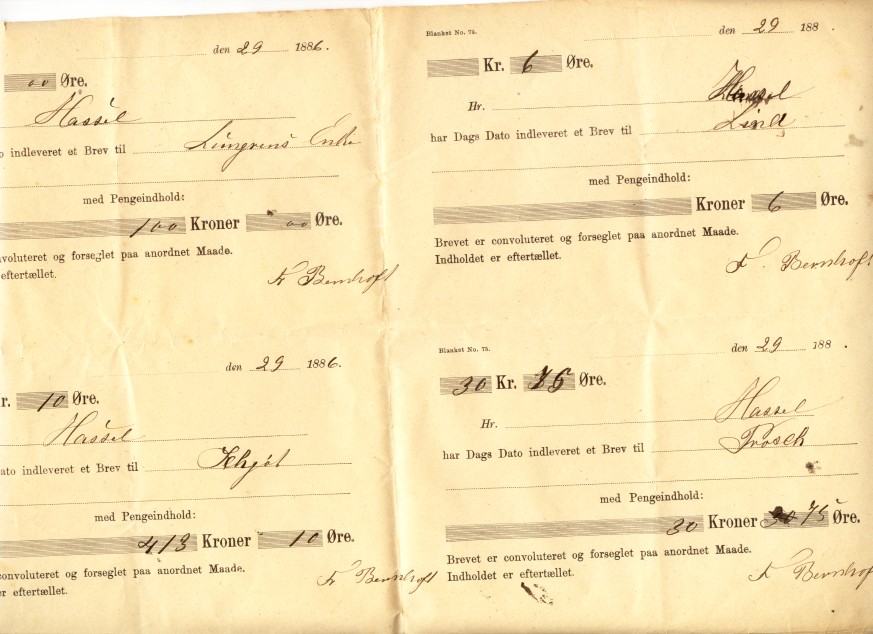 den 29 1886.
00 Øre.
Hassel
o indleveret et Brev til Lungrens Enke
med Pengeindhold:
100 Kroner 00 Øre.
nvoluteret og forseglet paa anordnet Maade.
eftertællet.
Fr Bernhoft
Blanket No. 75.
den 29 188 .
Kr. 6 Øre.
Hr. Hassel
har Dags Dato indleveret et Brev til Lind
med Pengeindhold:
Kroner 6 Øre.
Brevet er convoluteret og forseglet paa anordnet Maade.
Indholdet er eftertællet.
Fr. Bernhoft
den 29 1886.
r. 10 Øre.
Hassel
ato indleveret et Brev til
med Pengeindhold:
413 Kroner 10 Øre.
convoluteret og forseglet paa anordnet Maade.
er eftertællet.
Fr Bernhoft
Blanket No. 75.
den 29 188 .
30 Kr. 75 Øre.
Hr. Hassel
har Dags Dato indleveret et Brev til Prosch
med Pengeindhold:
30 Kroner 75 Øre.
Brevet er convoluteret og forseglet paa anordnet Maade.
Indholdet er eftertællet.
Fr Bernhoft